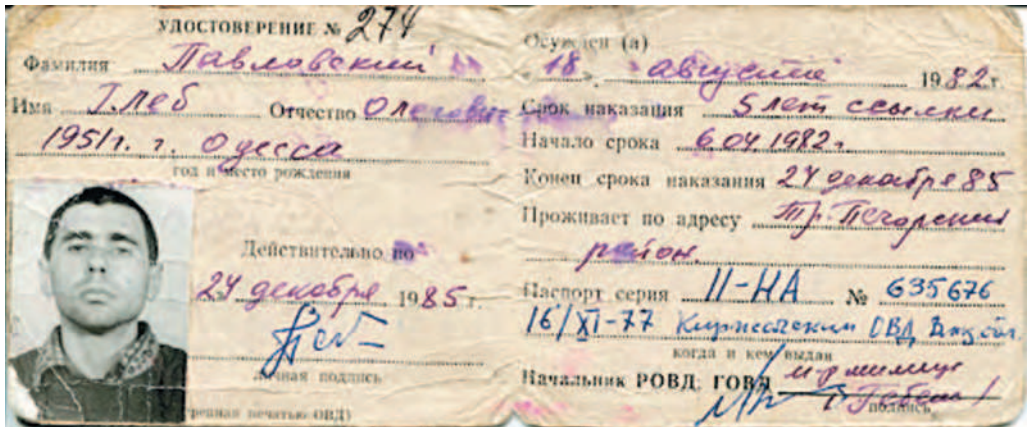 УДОСТОВЕРЕНИЕ № 274
Фамилия Павловский
Имя Глеб Отчество Олегович
1951г. г. Одесса
год и место рождения
Действительно по
24 декабря 1985 г.
личная подпись
печатью ОВД)
Осужден (а)
"18" августа 1982 г.
Срок наказания 5 лет ссылки
Начало срока 6.04.1982 г.
Конец срока наказания 24 декабря 85
Проживает по адресу Тр. Печорский
район.
Паспорт серия II-НА № 635676
16/XI-77 Киржачским ОВД Влад. обл.
когда и кем выдан
Начальник РОВД, ГОВД м-р милиции
подпись